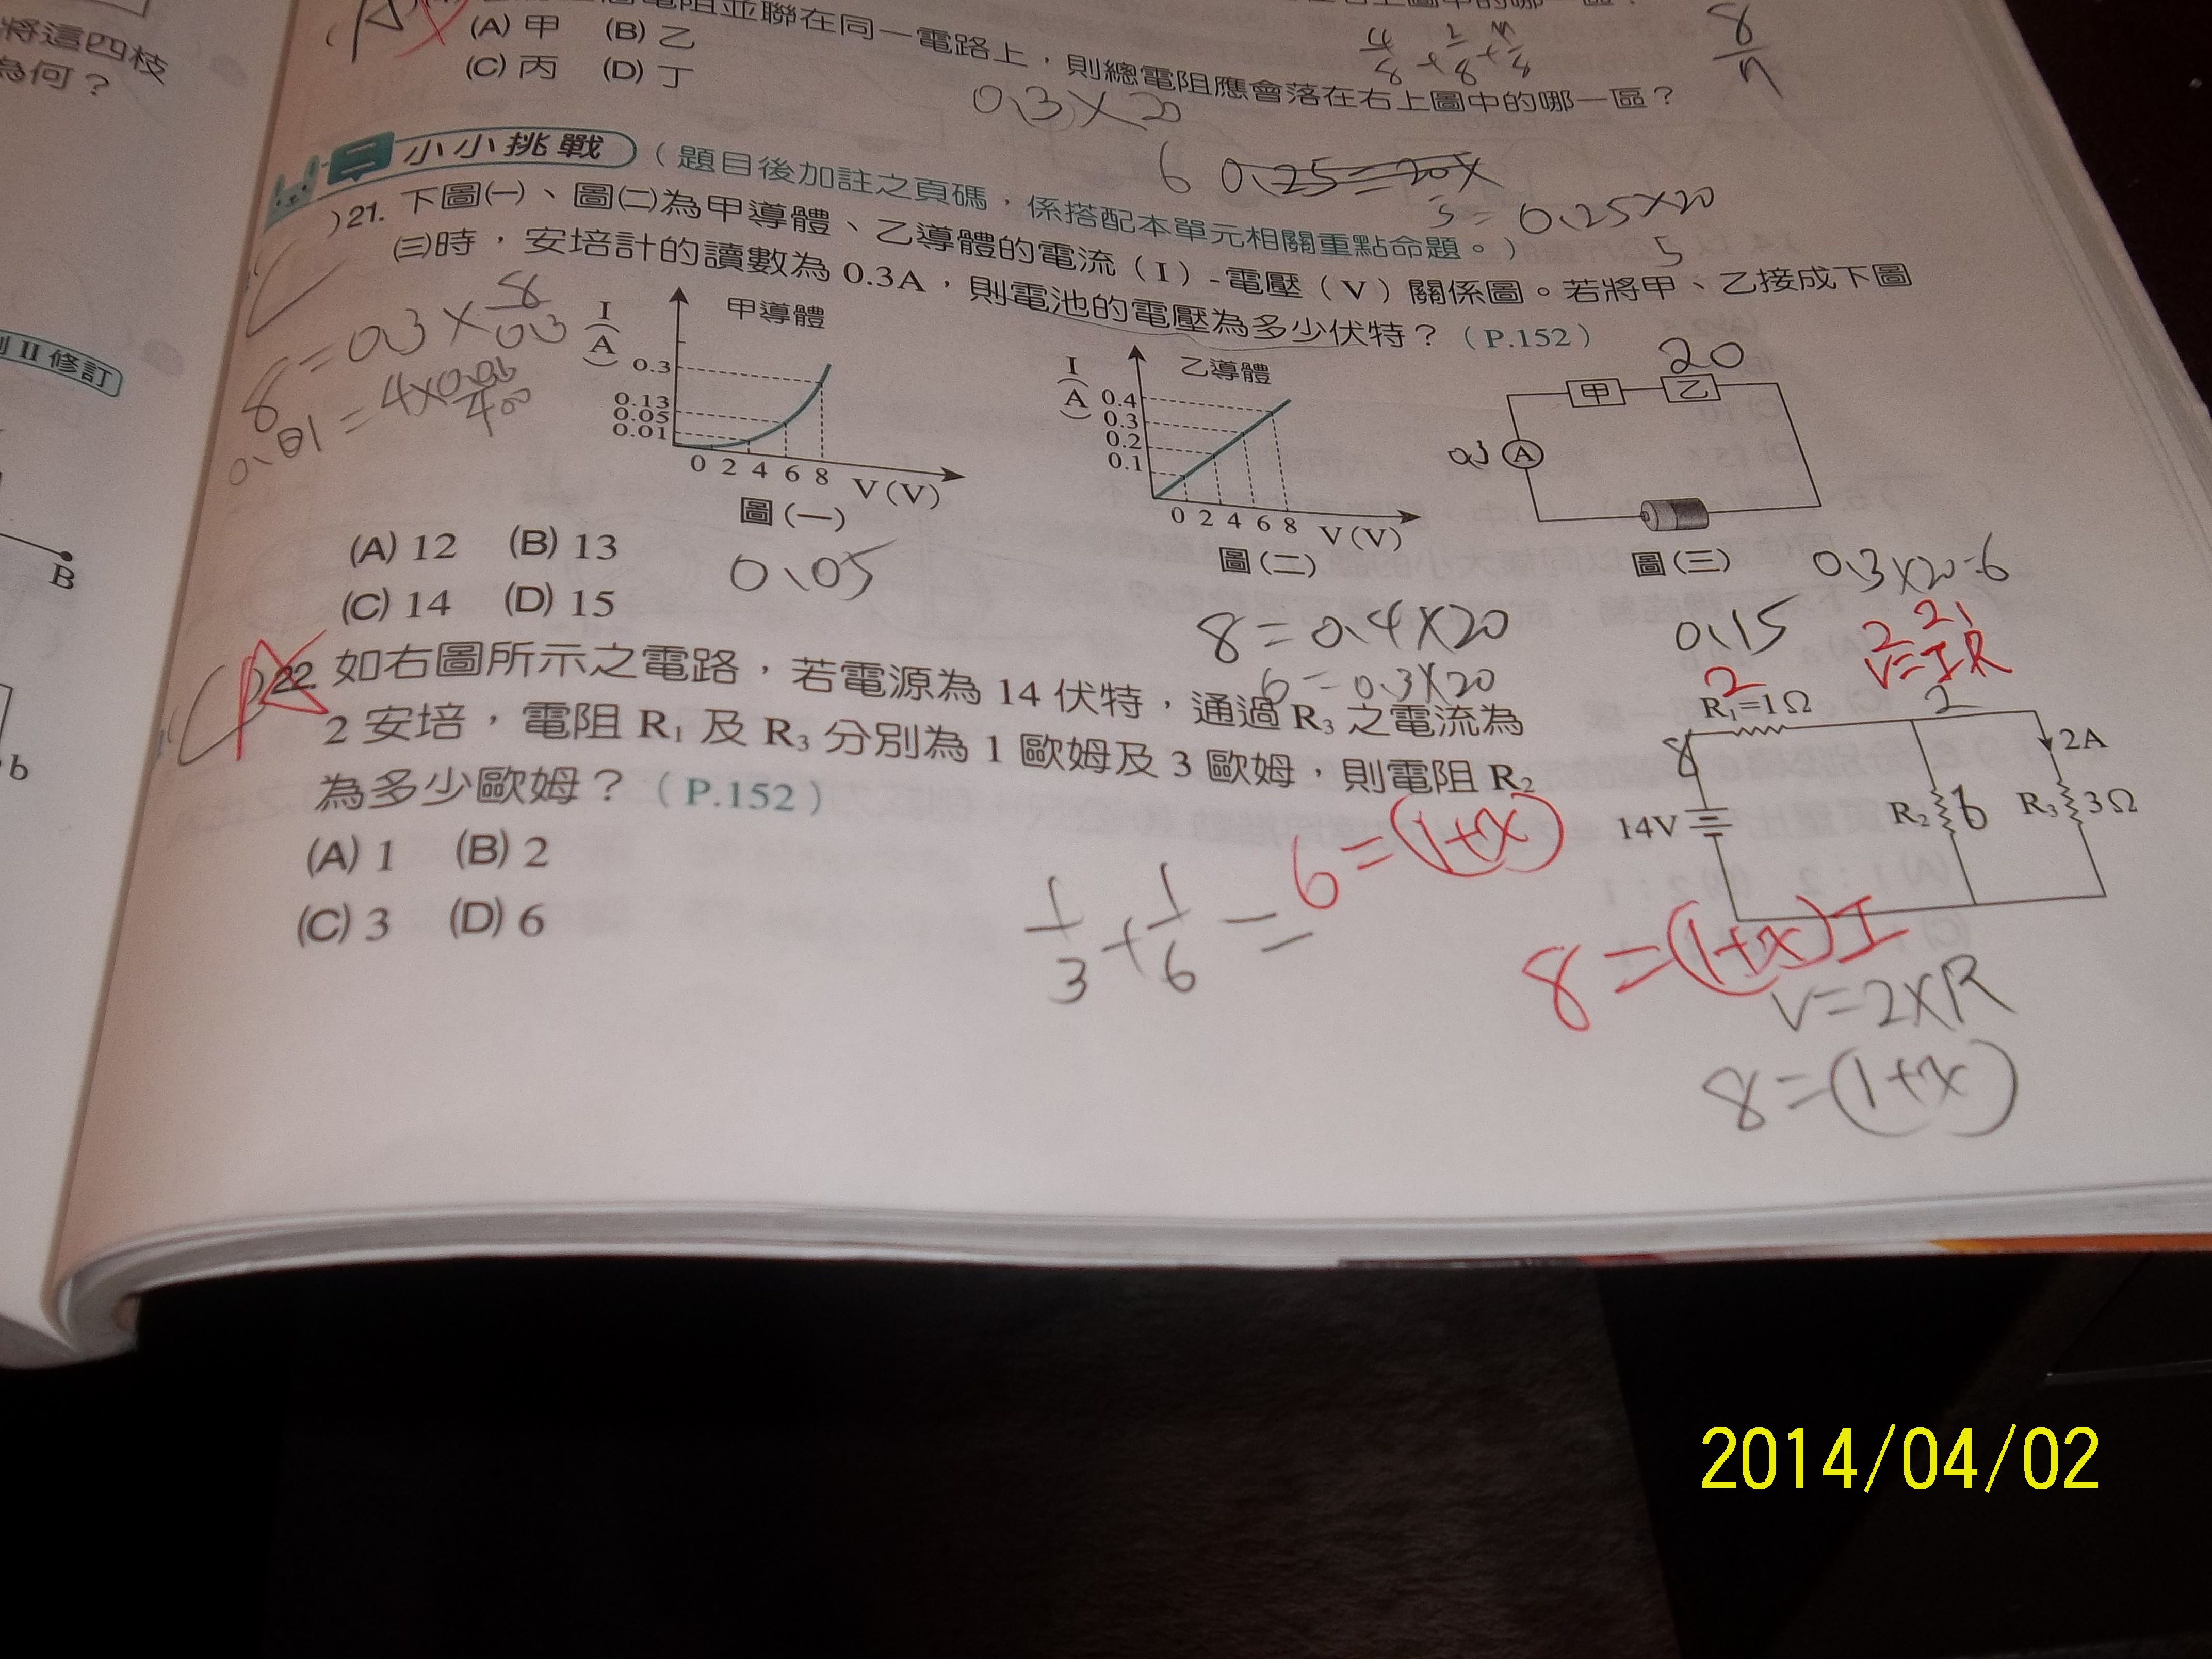 將這四枝
為何?
電阻並聯在同一電路上,則總電阻應會落在右上圖中的哪一區?
(A) 甲 (B) 乙
(C) 丙 (D) 丁
0.3×20
6
5=0.25×20
5
小小挑戰(題目後加註之頁碼,係搭配本單元相關重點命題。)
)21. 下圖㈠、圖㈡為甲導體、乙導體的電流(I)-電壓(V)關係圖。若將甲、乙接成下圖
㈢時,安培計的讀數為 0.3A,則電池的電壓為多少伏特?(P.152)
II 修訂
8=0.3×8/0.3
I
(A)
甲導體
0.3
0.13
0.05
0.01
0 2 4 6 8 V(V)
圖(一)
0.05
I
(A)
乙導體
0.4
0.3
0.2
0.1
0 2 4 6 8 V(V)
圖(二)
20
甲 乙
0.3 A
圖(三)
0.3×20=6
(A) 12 (B) 13
(C) 14 (D) 15
8=0.4×20
6=0.3×20
0.15
)22. 如右圖所示之電路,若電源為 14 伏特,通過 R₃ 之電流為
2 安培,電阻 R₁ 及 R₃ 分別為 1 歐姆及 3 歐姆,則電阻 R₂
為多少歐姆?(P.152)
(A) 1 (B) 2
(C) 3 (D) 6
2
V=IR
R₁=1Ω
2
8
2A
14V
R₂ 6
R₃ 3Ω
1/3+1/6=
6=(1+x)
8=(1+x)I
V=2×R
8=(1+x)
B
b
2014/04/02